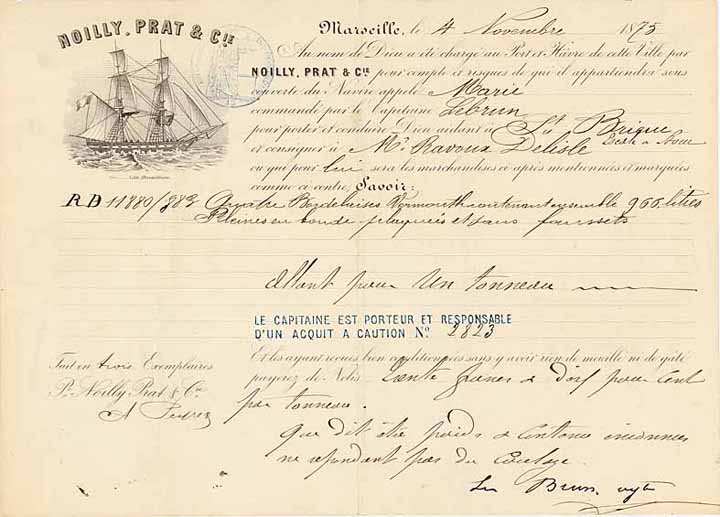 NOILLY, PRAT & CIE
Marseille, le 4 Novembre 1875
Au nom de Dieu a été chargé au Port et Hâvre de cette Ville par
NOILLY, PRAT & CIE pour compte et risques de qui il appartiendra sous
couverte du Navire appelé Marie
commandé par le Capitaine Lebrun
pour porter et conduire Dieu aidant à St Brieuc
et consigner à Mr Ravoux Delisle
ou qui pour lui sera les marchandises ci-après mentionnées et marquées
comme ci contre, Savoir:
R D 11880/883 Quatre Bordelaises Vermouth contenant ensemble 960 litres
Pleines en bonde plaquées et sans faussets
allant pour un tonneau
LE CAPITAINE EST PORTEUR ET RESPONSABLE
D'UN ACQUIT A CAUTION No 2823
Et les ayant reçues bien conditionnées sans y avoir rien de mouillé ni de gâté
payerez de Nolis trente francs & dix pour cent
par tonneau.
Fait en trois Exemplaires
Pr Noilly Prat & Cie
que dit être poids & contenu inconnus
ne repondant pas du coulage
Le Brun